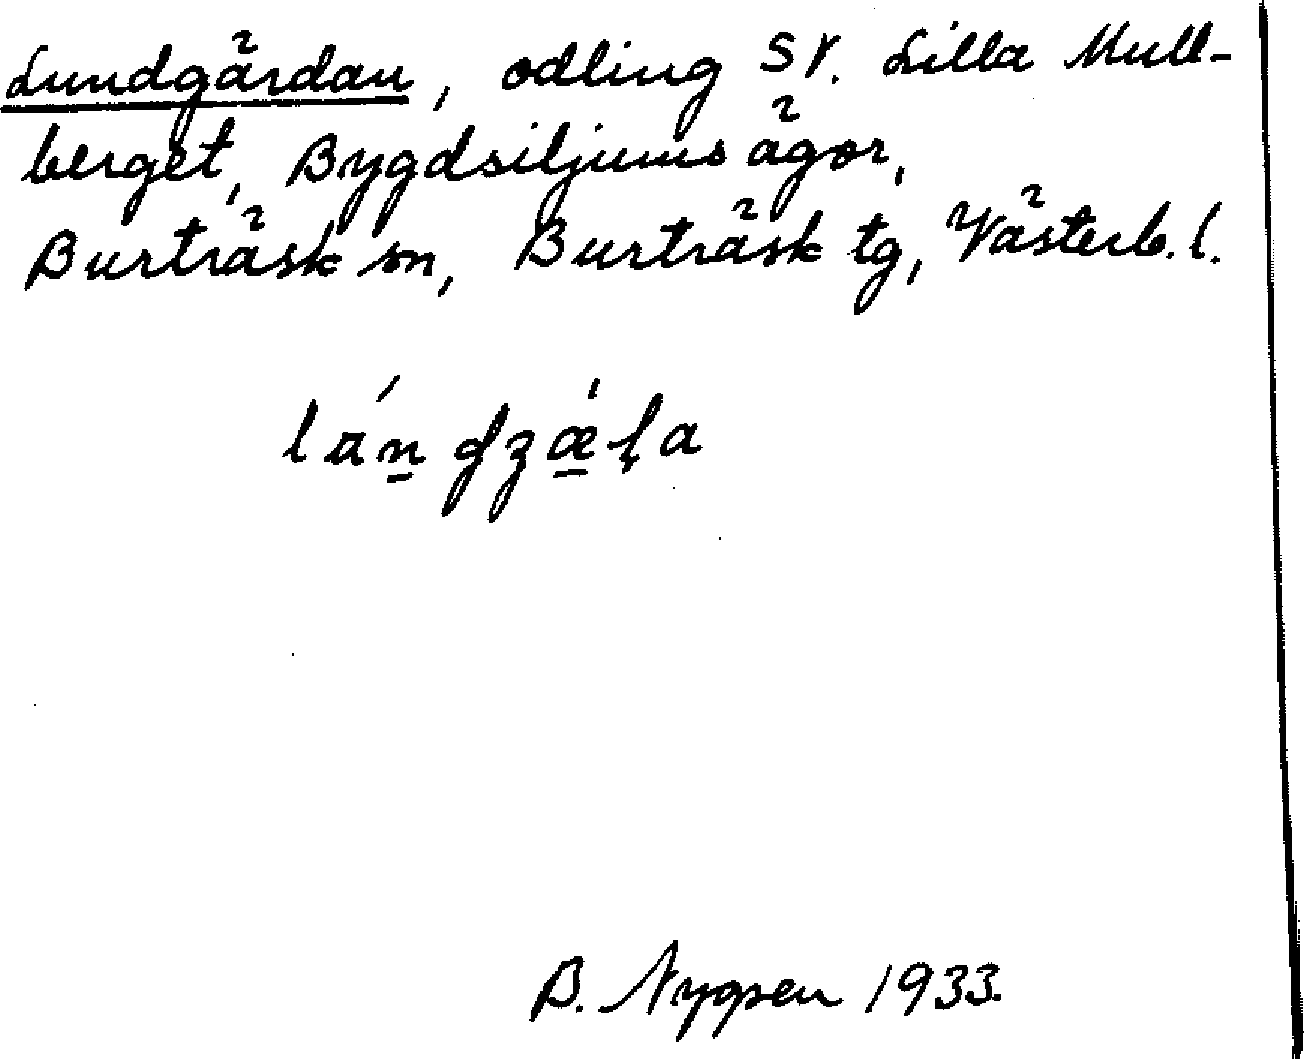 Lundgärdan, odling SV. Lilla Mull-
berget, Bygdsiljums ägor,
Burträsk sn, Burträsk tg, Västerb. l.
B. Nygren 1933.